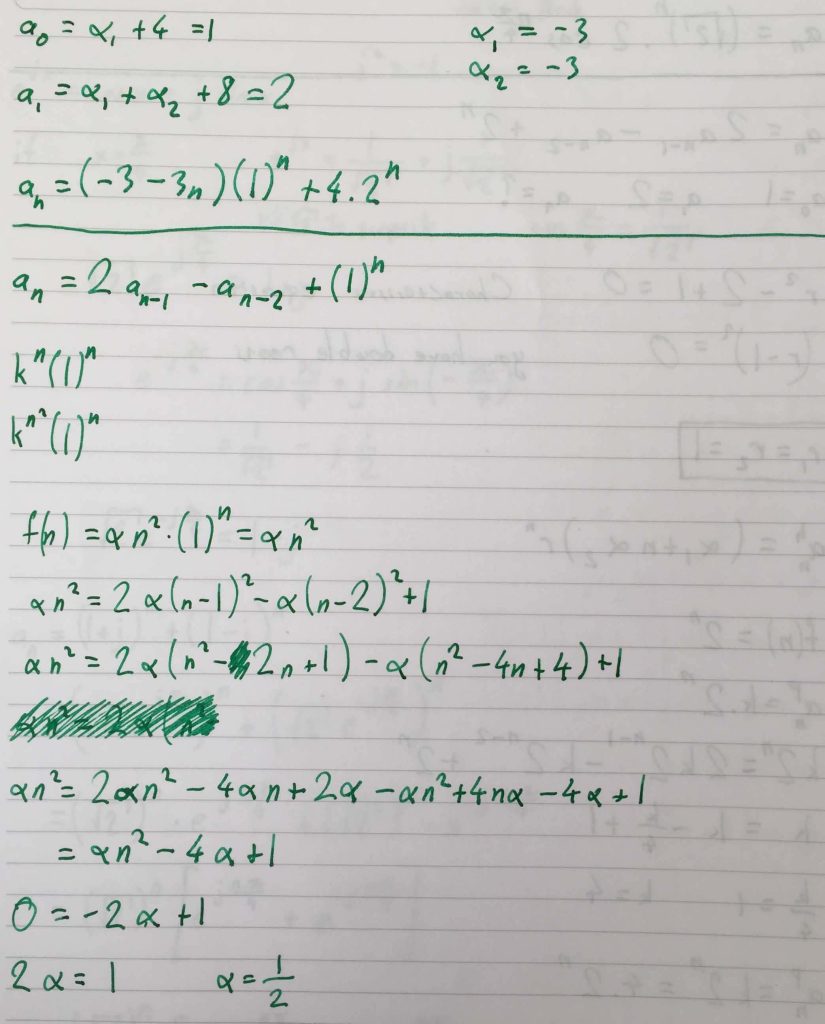 a₀ = α₁ + 4 = 1    α₁ = -3
α₂ = -3
a₁ = α₁ + α₂ + 8 = 2
aₙ = (-3 - 3n)(1)ⁿ + 4.2ⁿ
aₙ = 2aₙ₋₁ - aₙ₋₂ + (1)ⁿ
kⁿ(1)ⁿ
kⁿ²(1)ⁿ
f(n) = αn²·(1)ⁿ = αn²
αn² = 2α(n-1)² - α(n-2)² + 1
αn² = 2α(n² - 2n + 1) - α(n² - 4n + 4) + 1
αn² = 2αn² - 4αn + 2α - αn² + 4nα - 4α + 1
= αn² - 4α + 1
0 = -2α + 1
2α = 1    α = 1/2